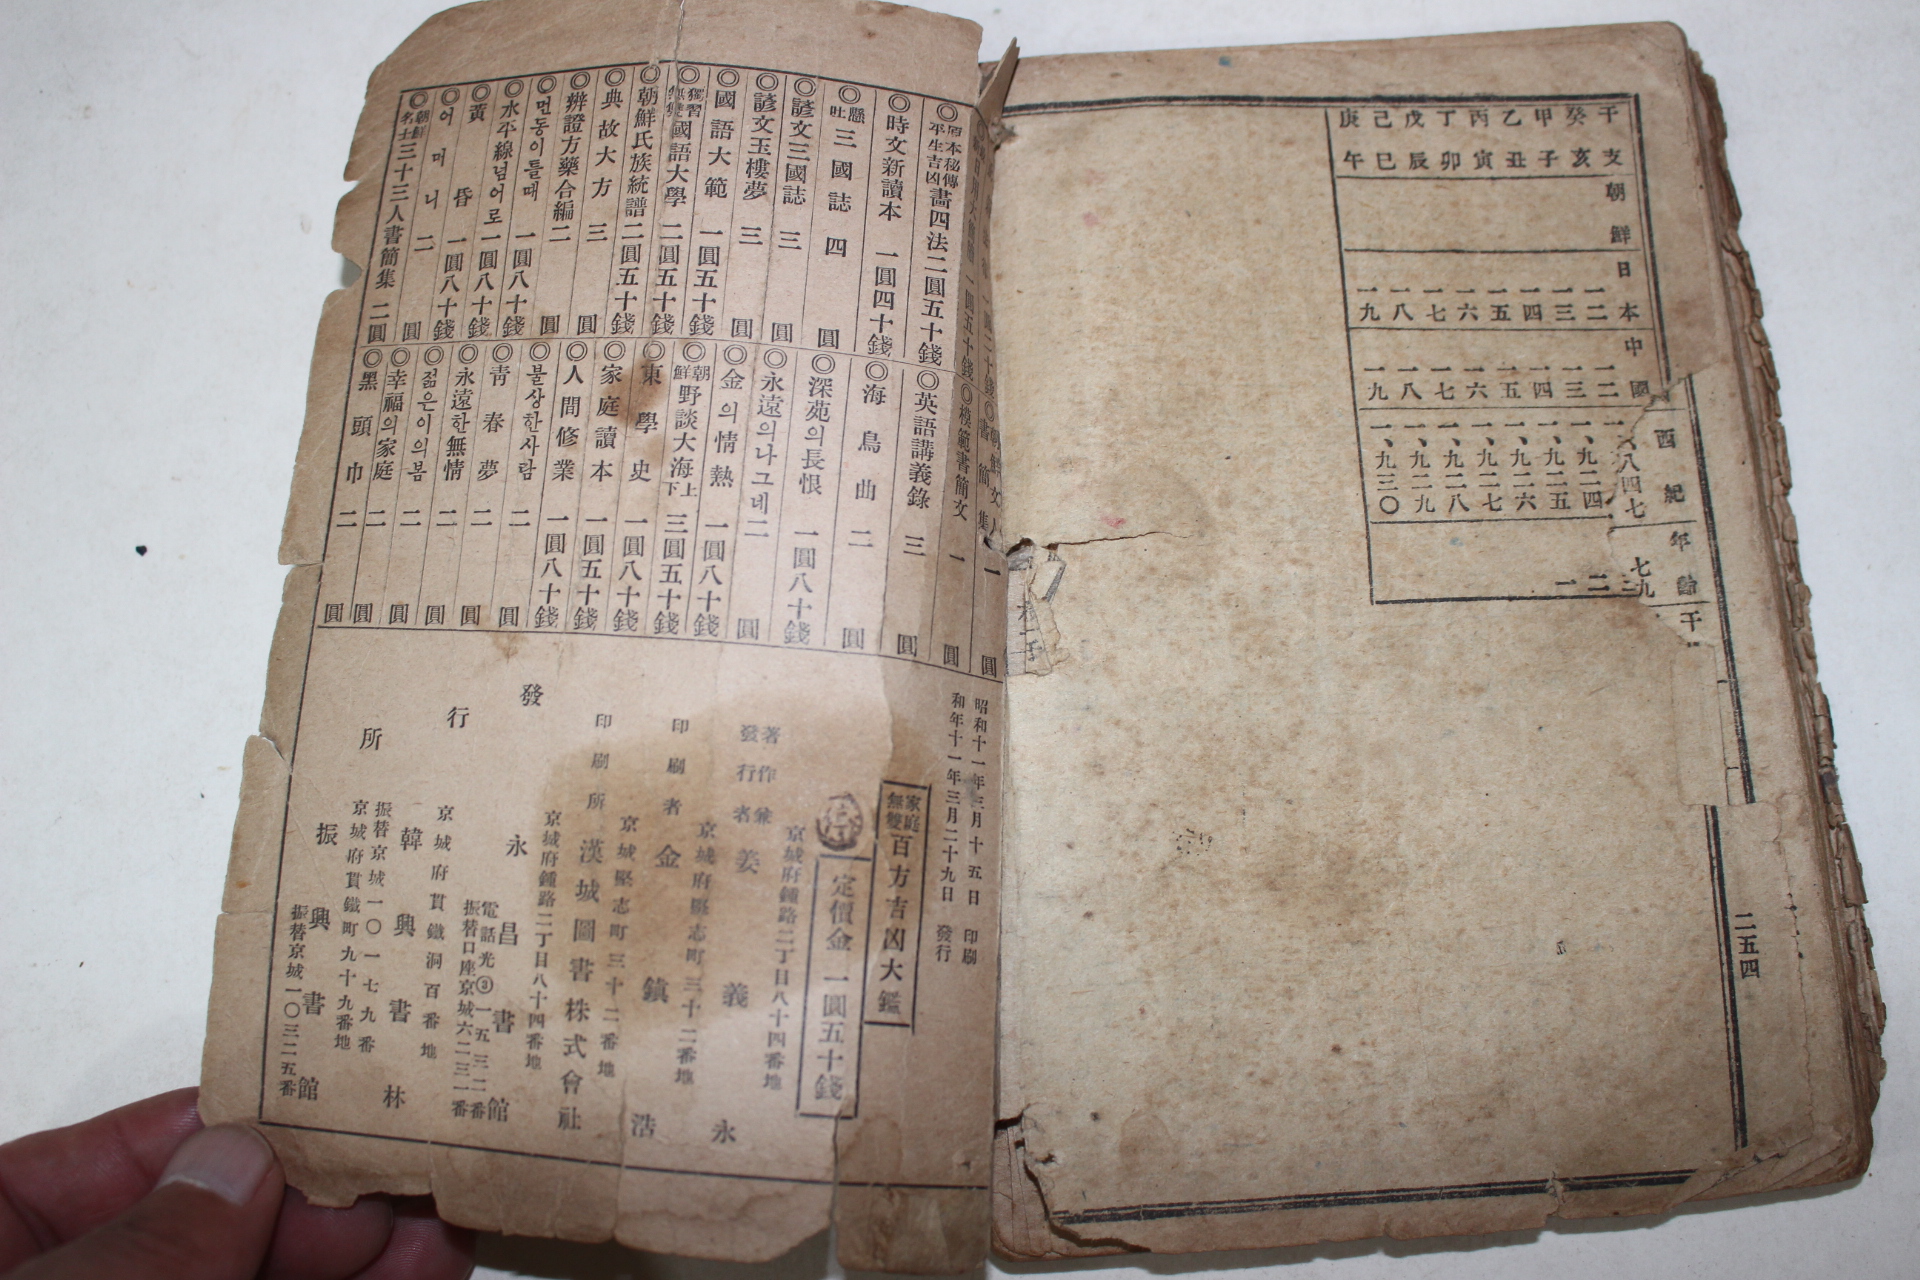 干支
朝鮮
日本
中國
西紀
年齡
癸亥 一二 一二
甲子 一三 一三 一、九二四
乙丑 一四 一四 一、九二五
丙寅 一五 一五 一、九二六
丁卯 一六 一六 一、九二七
戊辰 一七 一七 一、九二八
己巳 一八 一八 一、九二九
庚午 一九 一九 一、九三〇
二五四
◎原本秘傳平生吉凶畵四法 二圓五十錢
◎時文新讀本 一圓四十錢
◎懸吐三國誌 四圓
◎諺文三國誌 三圓
◎諺文玉樓夢 三圓
◎國語大範 一圓五十錢
◎獨習無雙國語大學 二圓五十錢
◎朝鮮氏族統譜 二圓五十錢
◎典故大方 三圓
◎辨證方藥合編 二圓
◎먼동이틀때 一圓八十錢
◎水平線넘어로 一圓八十錢
◎黃昏 一圓八十錢
◎어머니 二圓
◎朝鮮名士三十三人書簡集 二圓
◎模範書簡文 一圓
◎英語講義錄 三圓
◎海鳥曲 二圓
◎深苑의長恨 一圓八十錢
◎永遠의나그네 二圓
◎金의情熱 一圓八十錢
◎朝鮮野談大海上下 三圓五十錢
◎東學史 一圓八十錢
◎家庭讀本 一圓五十錢
◎人間修業 一圓八十錢
◎불상한사람 二圓
◎靑春夢 二圓
◎永遠한無情 二圓
◎젊은이의봄 二圓
◎幸福의家庭 二圓
◎黑頭巾 二圓
昭和十一年三月十五日 印刷
和年十一年三月二十九日 發行
家庭無雙百方吉凶大鑑
定價金一圓五十錢
京城府鍾路二丁目八十四番地
著作兼發行者 姜義永
京城府堅志町三十二番地
印刷者 金鎭浩
京城堅志町三十二番地
印刷所 漢城圖書株式會社
發行所
京城府鍾路二丁目八十四番地
永昌書館
電話光③一五三二番
振替口座京城六二三一番
京城府貫鐵洞百番地
韓興書林
振替京城一〇一七九番
京城府貫鐵町九十九番地
振興書館
振替京城一〇三二五番